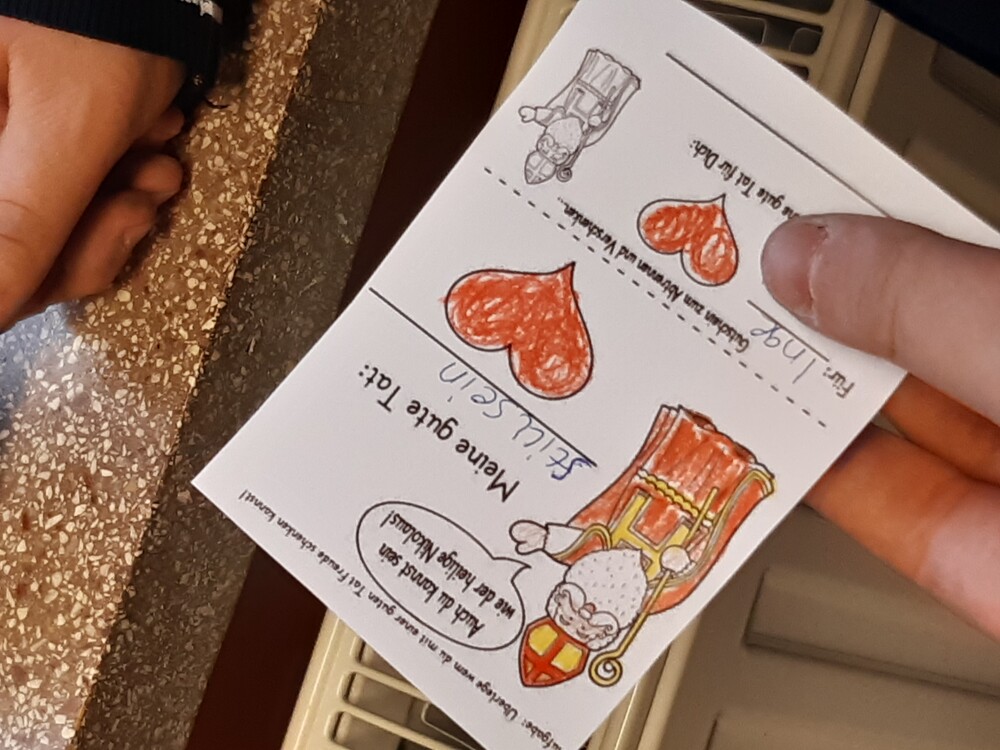 ufgabe: Überlege wem du mit einer guten Tat Freude schenken kannst!
Auch du kannst sein
wie der heilige Nikolaus!
Meine gute Tat:
still sein
Gutschein zum Abtrennen und Verschenken...
Für: Inge
ne gute Tat für Dich: